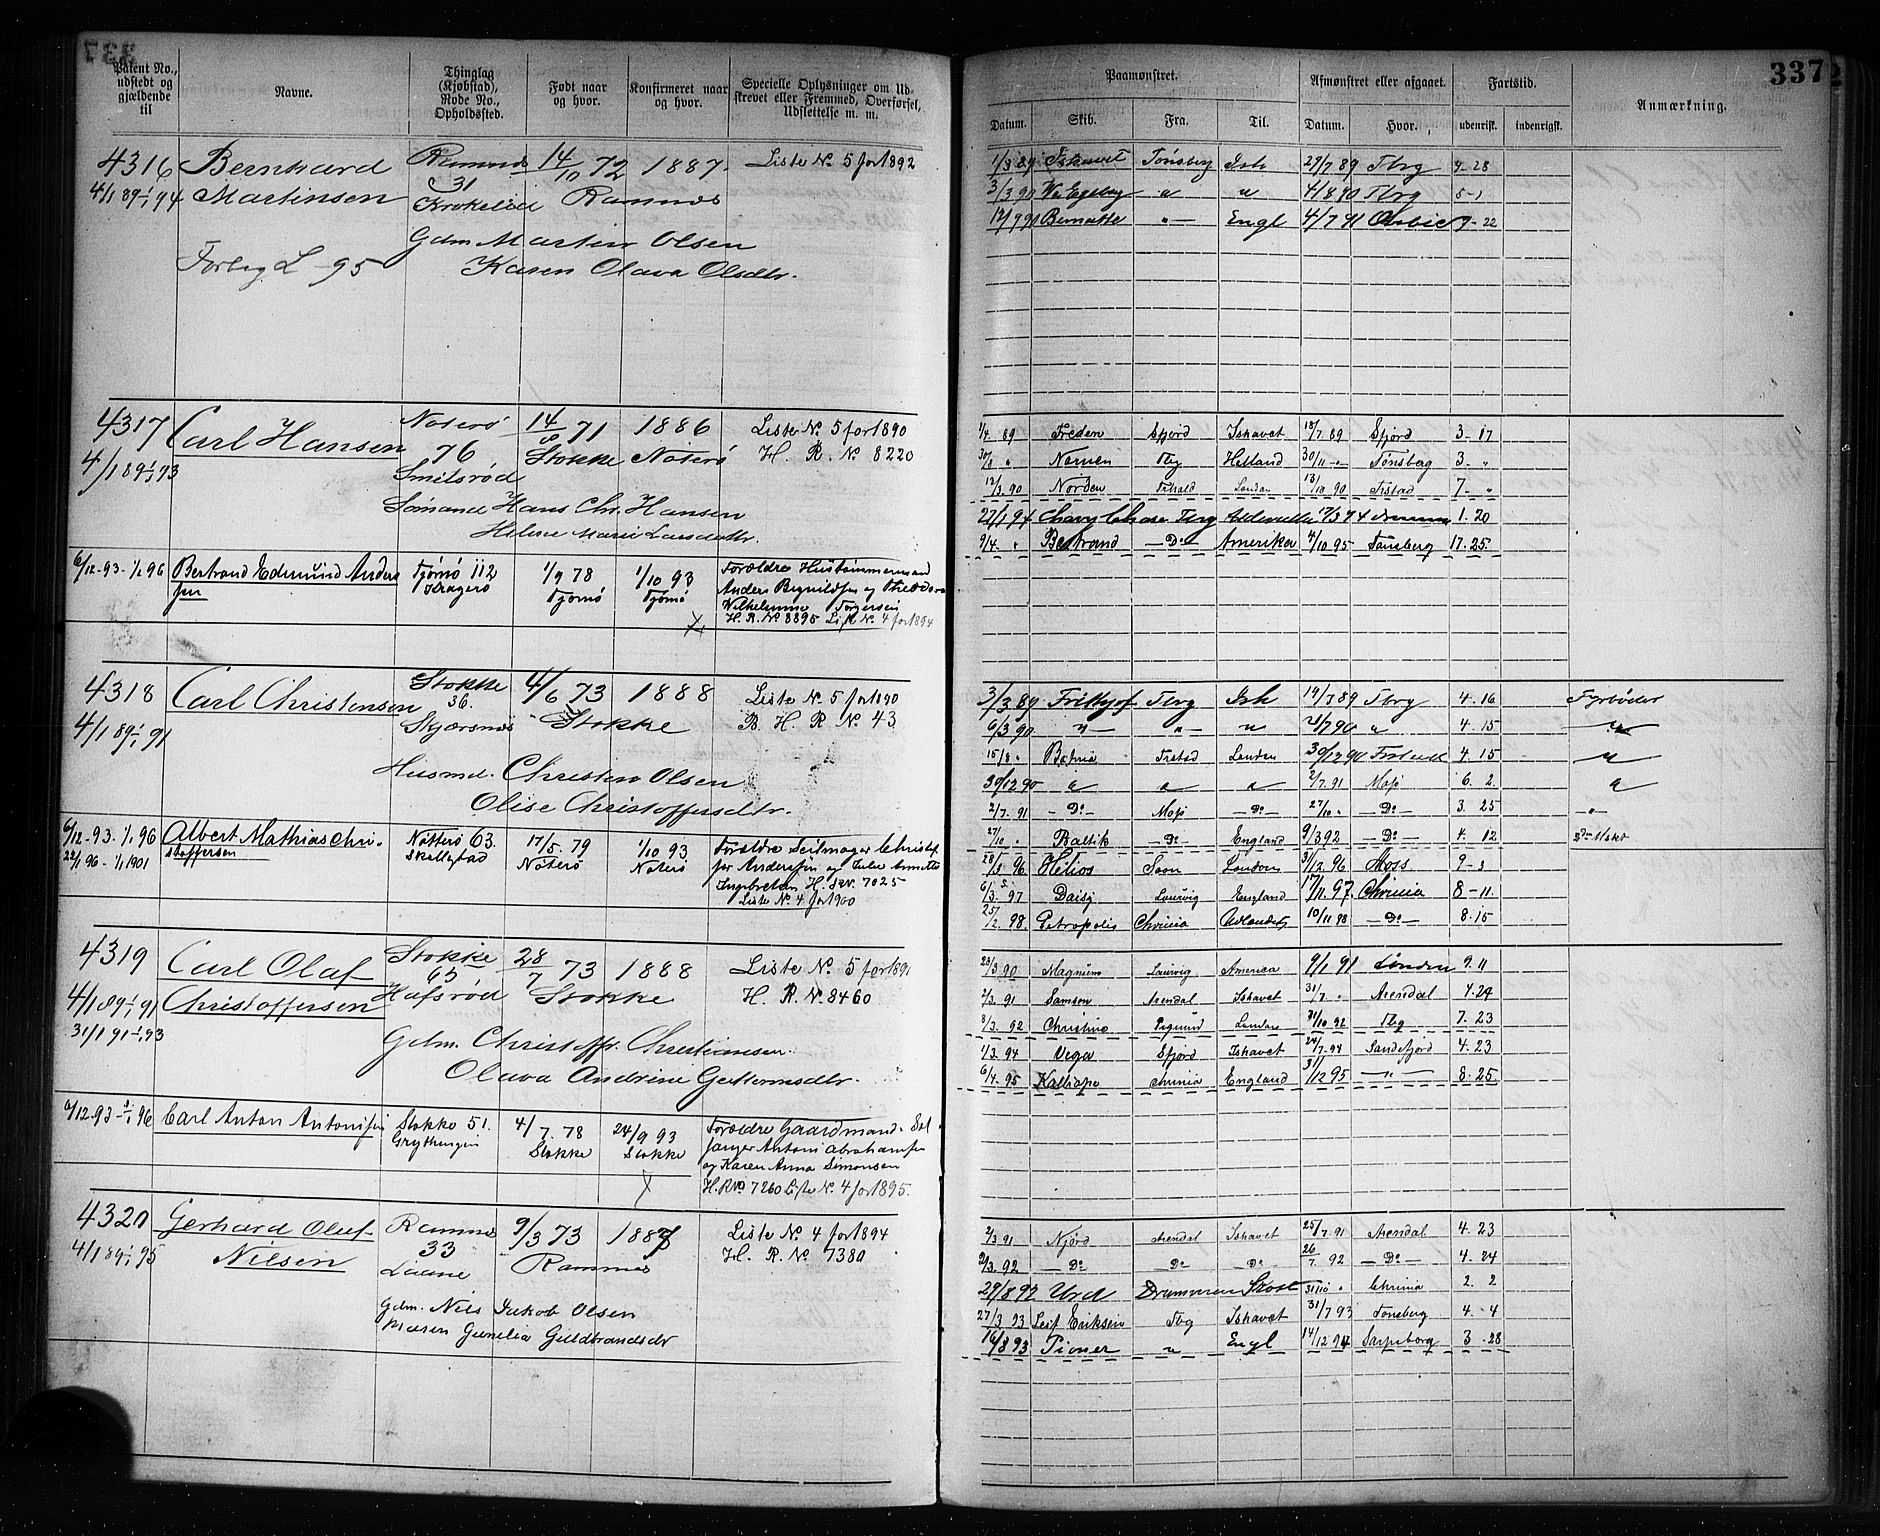 337
Patent No., udstedt og gjældende til
Navne.
Thinglag (Kjøbstad), Rode No., Opholdssted.
Født naar og hvor.
Konfirmeret naar og hvor.
Specielle Oplysninger om Udskrevet eller Fremmed, Overførsel, Udslettelse m. m.
4316 Bernhard 14/10 72 1887. Liste No. 5 for 1892
4/1 89 - 1/1 94 Martinsen 31 Ramnes
Gdm Martin Olsen
L - 95 Karen Olava Olsdtr.
4317 Carl Hansen Nøterø 14/8 71 1886 Liste No. 5 for 1890
4/1 89 - 1/1 93 76 Stokke Nøterø H. R. No. 8220
Smitsrød
Sømand Hans Chr. Hansen
Helene Marie
6/12-93 - 1/1 96 Bertrand Edmund Anders Tjømø 112 1/9 78 1/10 93 Forældre
sen Kragerø Tjømø Tjømø Anders
Wilhelmine Torgersen
H. R. No 8895 Liste No. 4 for 1894
4318 Carl Christensen Stokke 4/6 73 1888 Liste No. 5 for 1890
36.
4/1 89 - 1/1 91 Skjærsnæs Stokke B. H. R. No. 43
Husmd. Christen Olsen
Olise Christoffersdtr.
6/12-93 - 1/1 96 Albert Mathias Chri- Nøtterø 63. 17/5. 79 1/10 93 Forældre Seilmager Christof
22/1 96 - 1/1 1901 stoffersen Skallestad Nøterø Nøterø fer Anderssen og Annette
H. R No. 7025
Liste No. 4 for 1900
4319 Carl Olaf Stokke 28/7 73 1888 Liste No. 5 for 1891
65
4/1 89 - 1/1 91 Christoffersen Hafsrød Stokke H. R No. 8460
31/1 91 - 1/1 93
Gdm. Christoff. Christiansen.
Olava Andrine Guttormsdtr.
6/12-93 - 1/1 96 Carl Anton Antonsen Stokke 51. 4/7. 78 24/9 93 Forældre Gaardmand Sel
Stokke Stokke fanger Anton Abrahamsen
og Karen Anna Simonsen
H. R No 7260 Liste No. 4 for 1895.
4320 Gerhard Oluf Ramnes 9/3 73 1887 Liste No 4 for 1894
4/1 89 - 1/1 95 Nilsen 33 Ramnes H. R. No. 7380
Gdm. Nils Jakob Olsen
Maren Gunelia Guldbrandsdtr
Paamønstret.
Afmønstret eller afgaaet.
Fartstid.
Anmærkning.
Datum. Skib. Fra. Til. Datum. Hvor. udenrigsk. indenrigsk.
1/3 89 Ishavet Tønsberg Ish 29/7 89 Tbrg 4-28
3/3 90 4/8 90 Tbrg 5-1
12/9 90 Engl 4/7 91 9-22
1/4 89 Freden Sfjord Ishavet 18/7 89 Sfjord 3-17
30/8 " Tbg Holland 30/11 Tønsberg 3-"
12/3. 90 Norden London 13/10 90 7-"
22/1 94 Chevy Chase Tbrg 12/3 94 1.20
9/4. " Bertrand Do Amerika 4/10 95 Tønsberg 17.25.
3/3 89 Frithjof Tbrg Ish 19/7 89 Tbrg 4.16 Fyrbøder
6/3 90 " " " 21/7 90 " 4.15 "
15/8 " Frstad London 30/12 90 4.15 "
30/12 90 " " " 2/7. 91 Moss 6.2 "
2/7. 91 Do Moss Do 27/10 " Do 3.25 "
27/10 " Baltik Do England 9/3 92 Do 4.12
28/3 96 Helios Soon London 31/12 96 Moss 9-3
6/3. 97 Daisj Laurvig England 17/11 97. 8-11
25/2. 98. Petropolis 10/11 98 Do 8.15
28/3 90 Magnum Laurvig America 9/1 91 London 9.11
2/3. 91 Samson Arendal Ishavet 31/7. " Arendal 4.29
8/3. 92 Christine London 31/10 92 Tbg 7.23
1/3. 94 Vega Sfjord Ishavet 24/7. 94 Sandefjord 4.23
6/4. 95 Kalliope England 31/12 95 " 8.25.
2/3 91 Njörd Arendal Ishavet 25/7. 91 Arendal 4.23
2/3. 92 Do Do Do 26/7. 92 Do 4.24
29/8 92 Urd Drammen 31/10 " 2.2
27/3 93 Leif Eriksen Tbg Ishavet 31/7 93 Tønsberg 4.4
16/8 93 Pioner " Engl 14/12 94 Sarpsborg 3-28